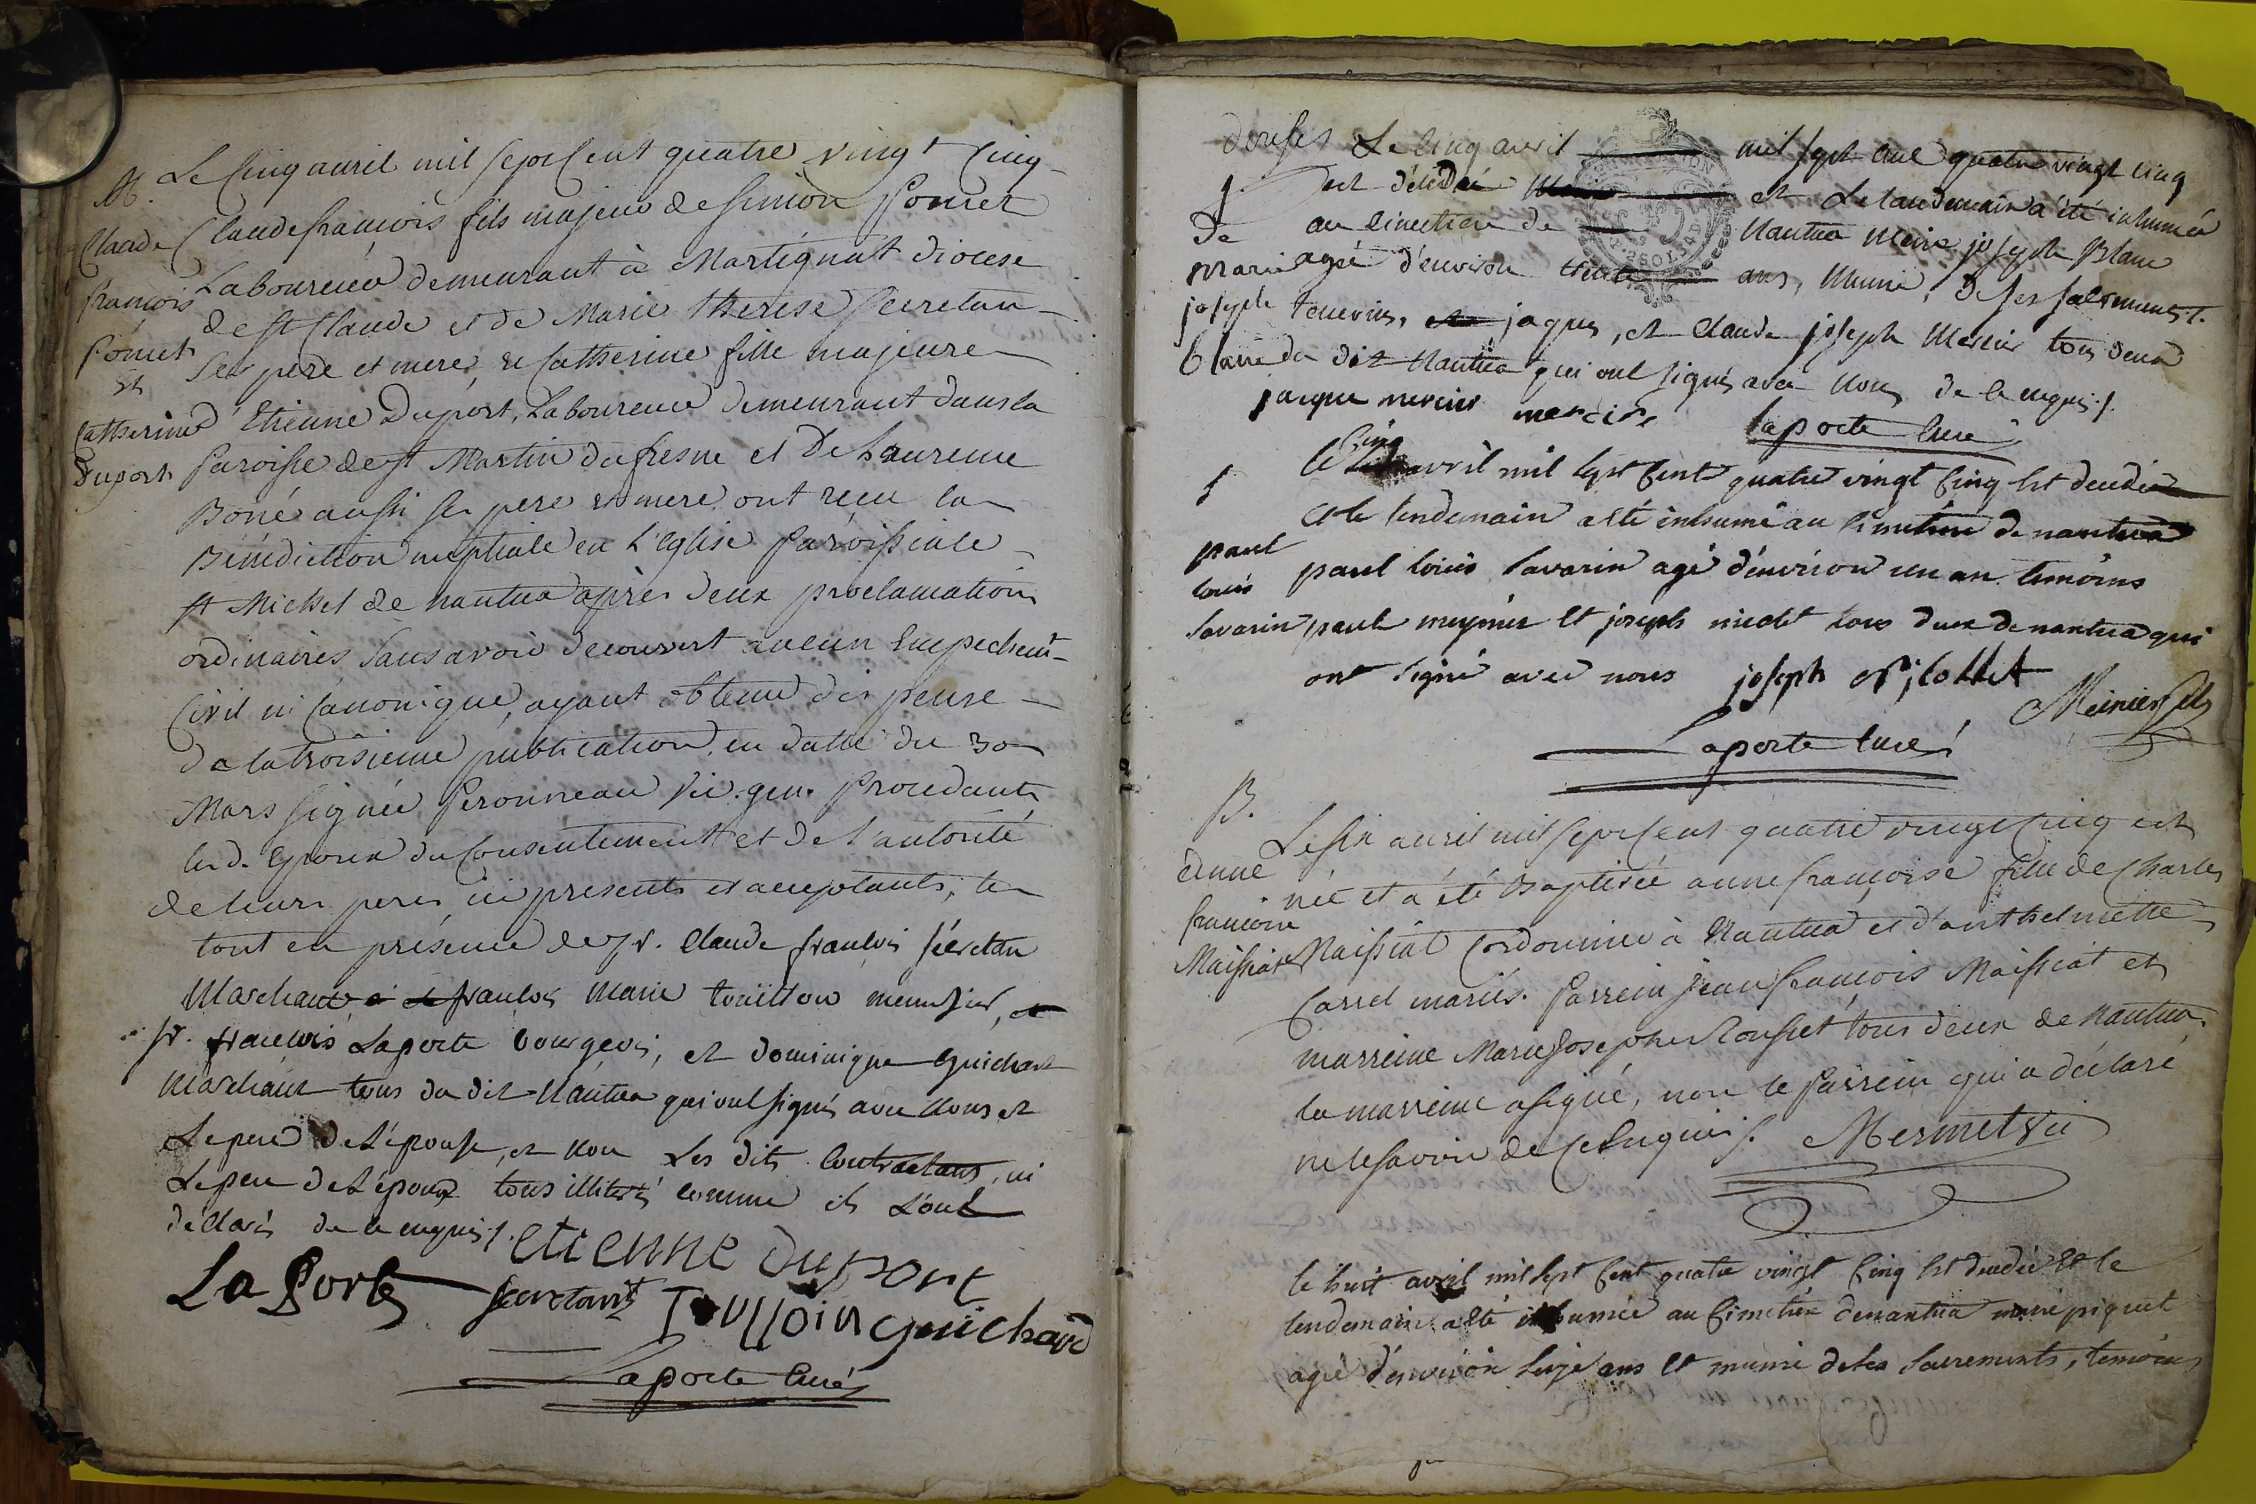 M.
Claude
françois
Pomet
et
Catherine
Duport
Le Cinq avril mil sept Cent quatre vingt Cinq
Claude françois fils majeur de Simon Pomet
Laboureur demeurant à Martignat diocese
de st Claude et de Marie therese Secretan
ses pere et mere, et Catherine fille majeure
d'Etienne Duport, Laboureur demeurant dans la
Paroisse de st Martin du fresne et De Laurence
Boné aussi ses pere et mere, ont recu la
Bénédiction nuptiale en L'Eglise Paroissiale
st Michel de nantua après deux proclamations
ordinaires Sans avoir decouvert aucun Empechemt
Civil ni Canonique, ayant obtenu dispense
de la troisieme publication en datte du 30
Mars signée Peronneau Vic. gen. Procedants
les d. Epoux du Consentement et de l'autorité
de leurs peres ici presents et acceptants; le
tout en présence de sr. Claude françois sécretan
Marchant, françois Marie touillon menusier, et
sr. françois Laporte bourgeois, et dominique Guichard
Marchant tous du dit Nantua qui ont signés avec Nous et
Le pere de L'épouse, et non Les dits Contractans, ni
Le pere de L'époux tous illiterés comme ils L'ont
déclarés de ce enquis /.
etienne duport
La Porte Secretant Toulloin Guichard
Laporte Curé
douses Le Cinq avril mil sept cent quatre vingt cinq
f. est décédé et Le landemain a été inhumée
De au cimetiere de Nantua Marie joseph Blanc
Marie agée d'environ trente ans, Munie, de ses sacrements /.
joseph temoins, jaques, et Claude joseph Mercier tous deux
blanc du dit Nantua qui ont signés avec Nous de ce enquis /.
jacque mercier mercier Laporte Curé
f
paul
louis
Savarin
le Cinq avril mil Sept Cent quatre vingt Cinq Est decedé
et le lendemain a été inhumé au Cimetiere de nantua
paul louis Savarin agé d'environ un an. temoins
paul meynier Et joseph nicolet tous deux de nantua qui
ont signé avec nous joseph Nicollet
Meinier fils
Laporte Curé
B.
Anne
françoise
Maissiat
Le six avril mil sept Cent quatre vingt Cinq est
née et a été Baptisée anne françoise fille de Charles
Maissiat Cordonnier à Nantua et d'anthelmette
Carrel mariés. Parrein jean françois Maissiat et
marreine Marie Josephe Rousset tous deux de Nantua.
la marreine a signé, non le Parrein qui a déclaré
ne le savoir de Ce Enquis /. Mermet Vic
le huit avril mil Sept Cent quatre vingt Cinq Est decedée Et le
lendemain a été inhumée au Cimetiere de nantua marie piquet
agée d'environ seize ans Et munie de Ses Sacrements, temoins